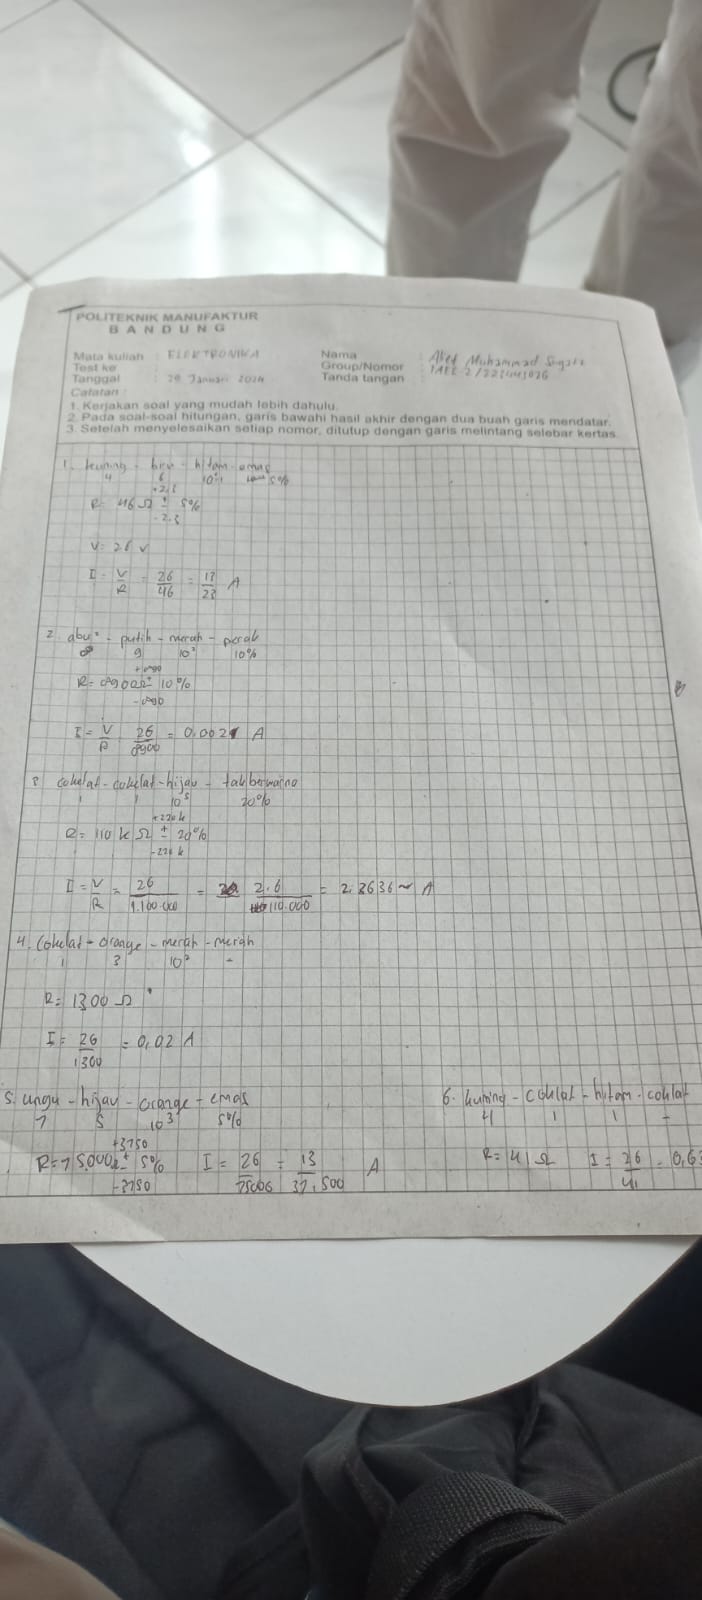 POLITEKNIK MANUFAKTUR
BANDUNG
Mata kuliah : ELEKTRONIKA
Nama :
Test ke :
Group/Nomor :
Tanggal : 29 Januari 2024
Tanda tangan :
Catatan :
1. Kerjakan soal yang mudah lebih dahulu.
2. Pada soal-soal hitungan, garis bawahi hasil akhir dengan dua buah garis mendatar.
3. Setelah menyelesaikan setiap nomor, ditutup dengan garis melintang selebar kertas
1. kuning - biru - hitam - emas
4 6 5%
+2.3
R = 46 Ω ± 5%
-2.3
V = 26 V
I = V/R = 26/46 = 13/23 A
2. abu² - putih - merah - perak
8 9 10² 10%
+890
R = 8900Ω ± 10%
-890
I = V/R 26/8900 = A
3 cokelat - cokelat - hijau - tak berwarna
1 1 10⁵ 20%
+220k
R = 110 k Ω ± 20%
-220 k
I = V/R = 26/1.100.000 = 2.6/110.000 = A
4. Cokelat - orange - merah - merah
1 3 10² -
R = 1300 Ω
I = 26/1300 = 0,02 A
5. ungu - hijau - orange - emas
7 5 10³ 5%
+3750
R = 75.000Ω ± 5%
-3750
I = 26/75000 = 13/37.500 A
6. kuning - coklat - hitam - coklat
4 1 1 -
R = 41 Ω I = 26/41 = 0,63